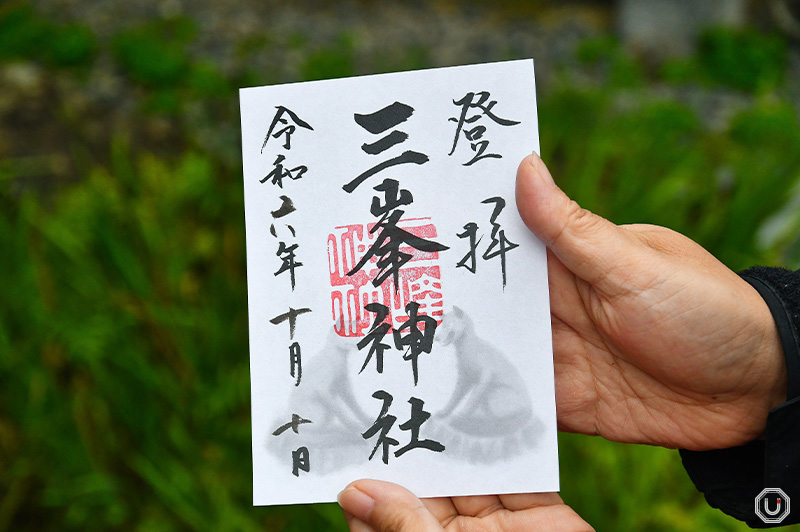 登拝
三峯神社
令和六年十月十日